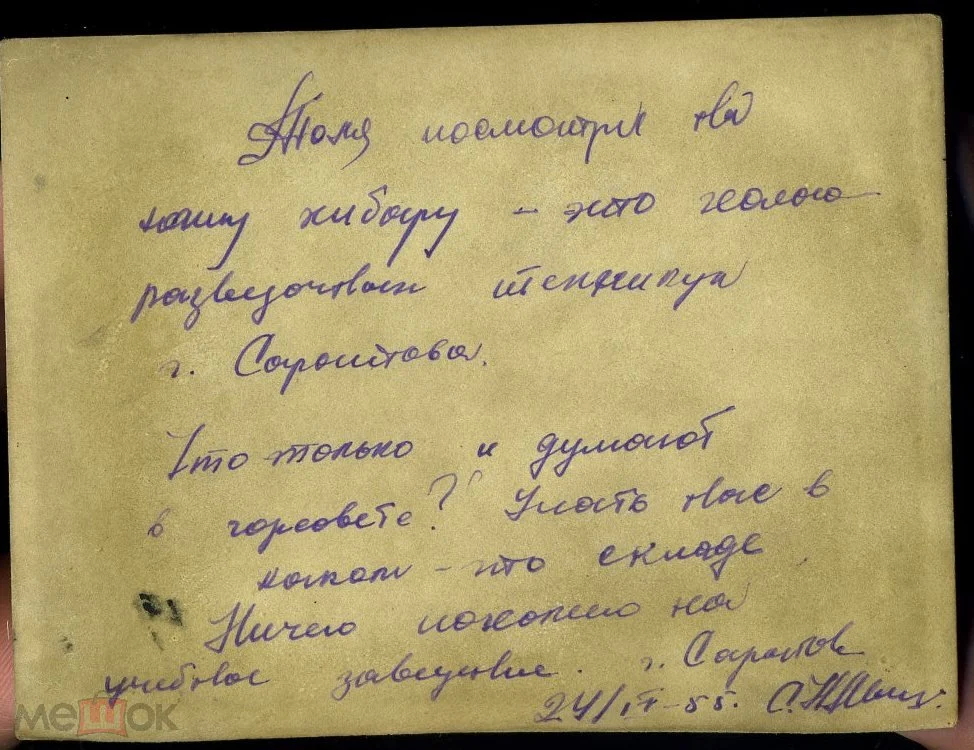 Толя посмотри на
нашу хибару – это геолого
разведочный техникум
г. Саратова.
Что только и думают
в горсовете? Учить нас в
каком-то складе
Ничего похожего на
учебное заведение. г. Саратов
24/IV-55.
мешок